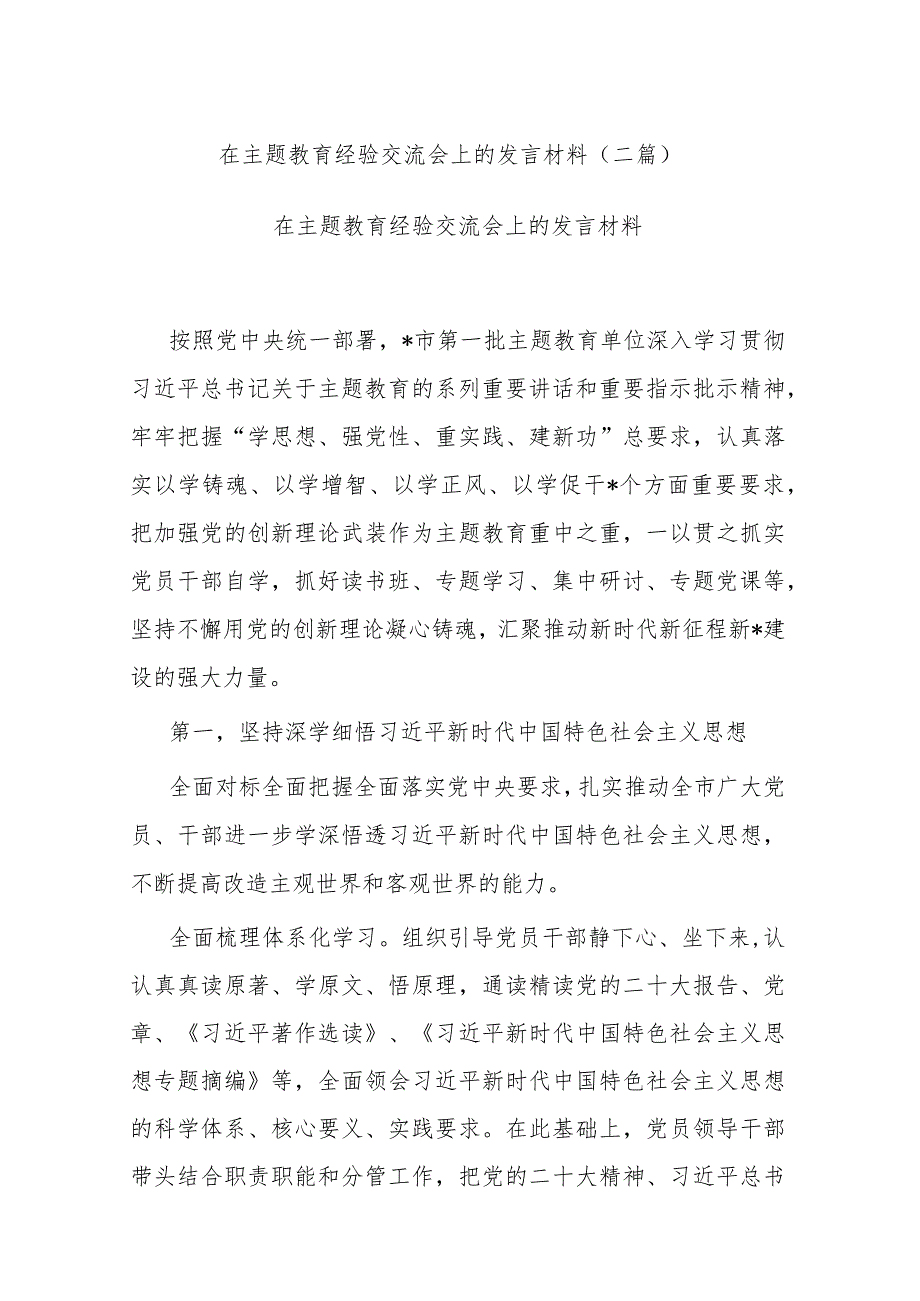 在主题教育经验交流会上的发言材料（二篇）
在主题教育经验交流会上的发言材料
按照党中央统一部署，*市第一批主题教育单位深入学习贯彻
习近平总书记关于主题教育的系列重要讲话和重要指示批示精神，
牢牢把握“学思想、强党性、重实践、建新功”总要求，认真落
实以学铸魂、以学增智、以学正风、以学促干*个方面重要要求，
把加强党的创新理论武装作为主题教育重中之重，一以贯之抓实
党员干部自学，抓好读书班、专题学习、集中研讨、专题党课等，
坚持不懈用党的创新理论凝心铸魂，汇聚推动新时代新征程新*建
设的强大力量。
第一，坚持深学细悟习近平新时代中国特色社会主义思想
全面对标全面把握全面落实党中央要求，扎实推动全市广大党
员、干部进一步学深悟透习近平新时代中国特色社会主义思想，
不断提高改造主观世界和客观世界的能力。
全面梳理体系化学习。组织引导党员干部静下心、坐下来,认
认真真读原著、学原文、悟原理，通读精读党的二十大报告、党
章、《习近平著作选读》、《习近平新时代中国特色社会主义思
想专题摘编》等，全面领会习近平新时代中国特色社会主义思想
的科学体系、核心要义、实践要求。在此基础上，党员领导干部
带头结合职责职能和分管工作，把党的二十大精神、习近平总书